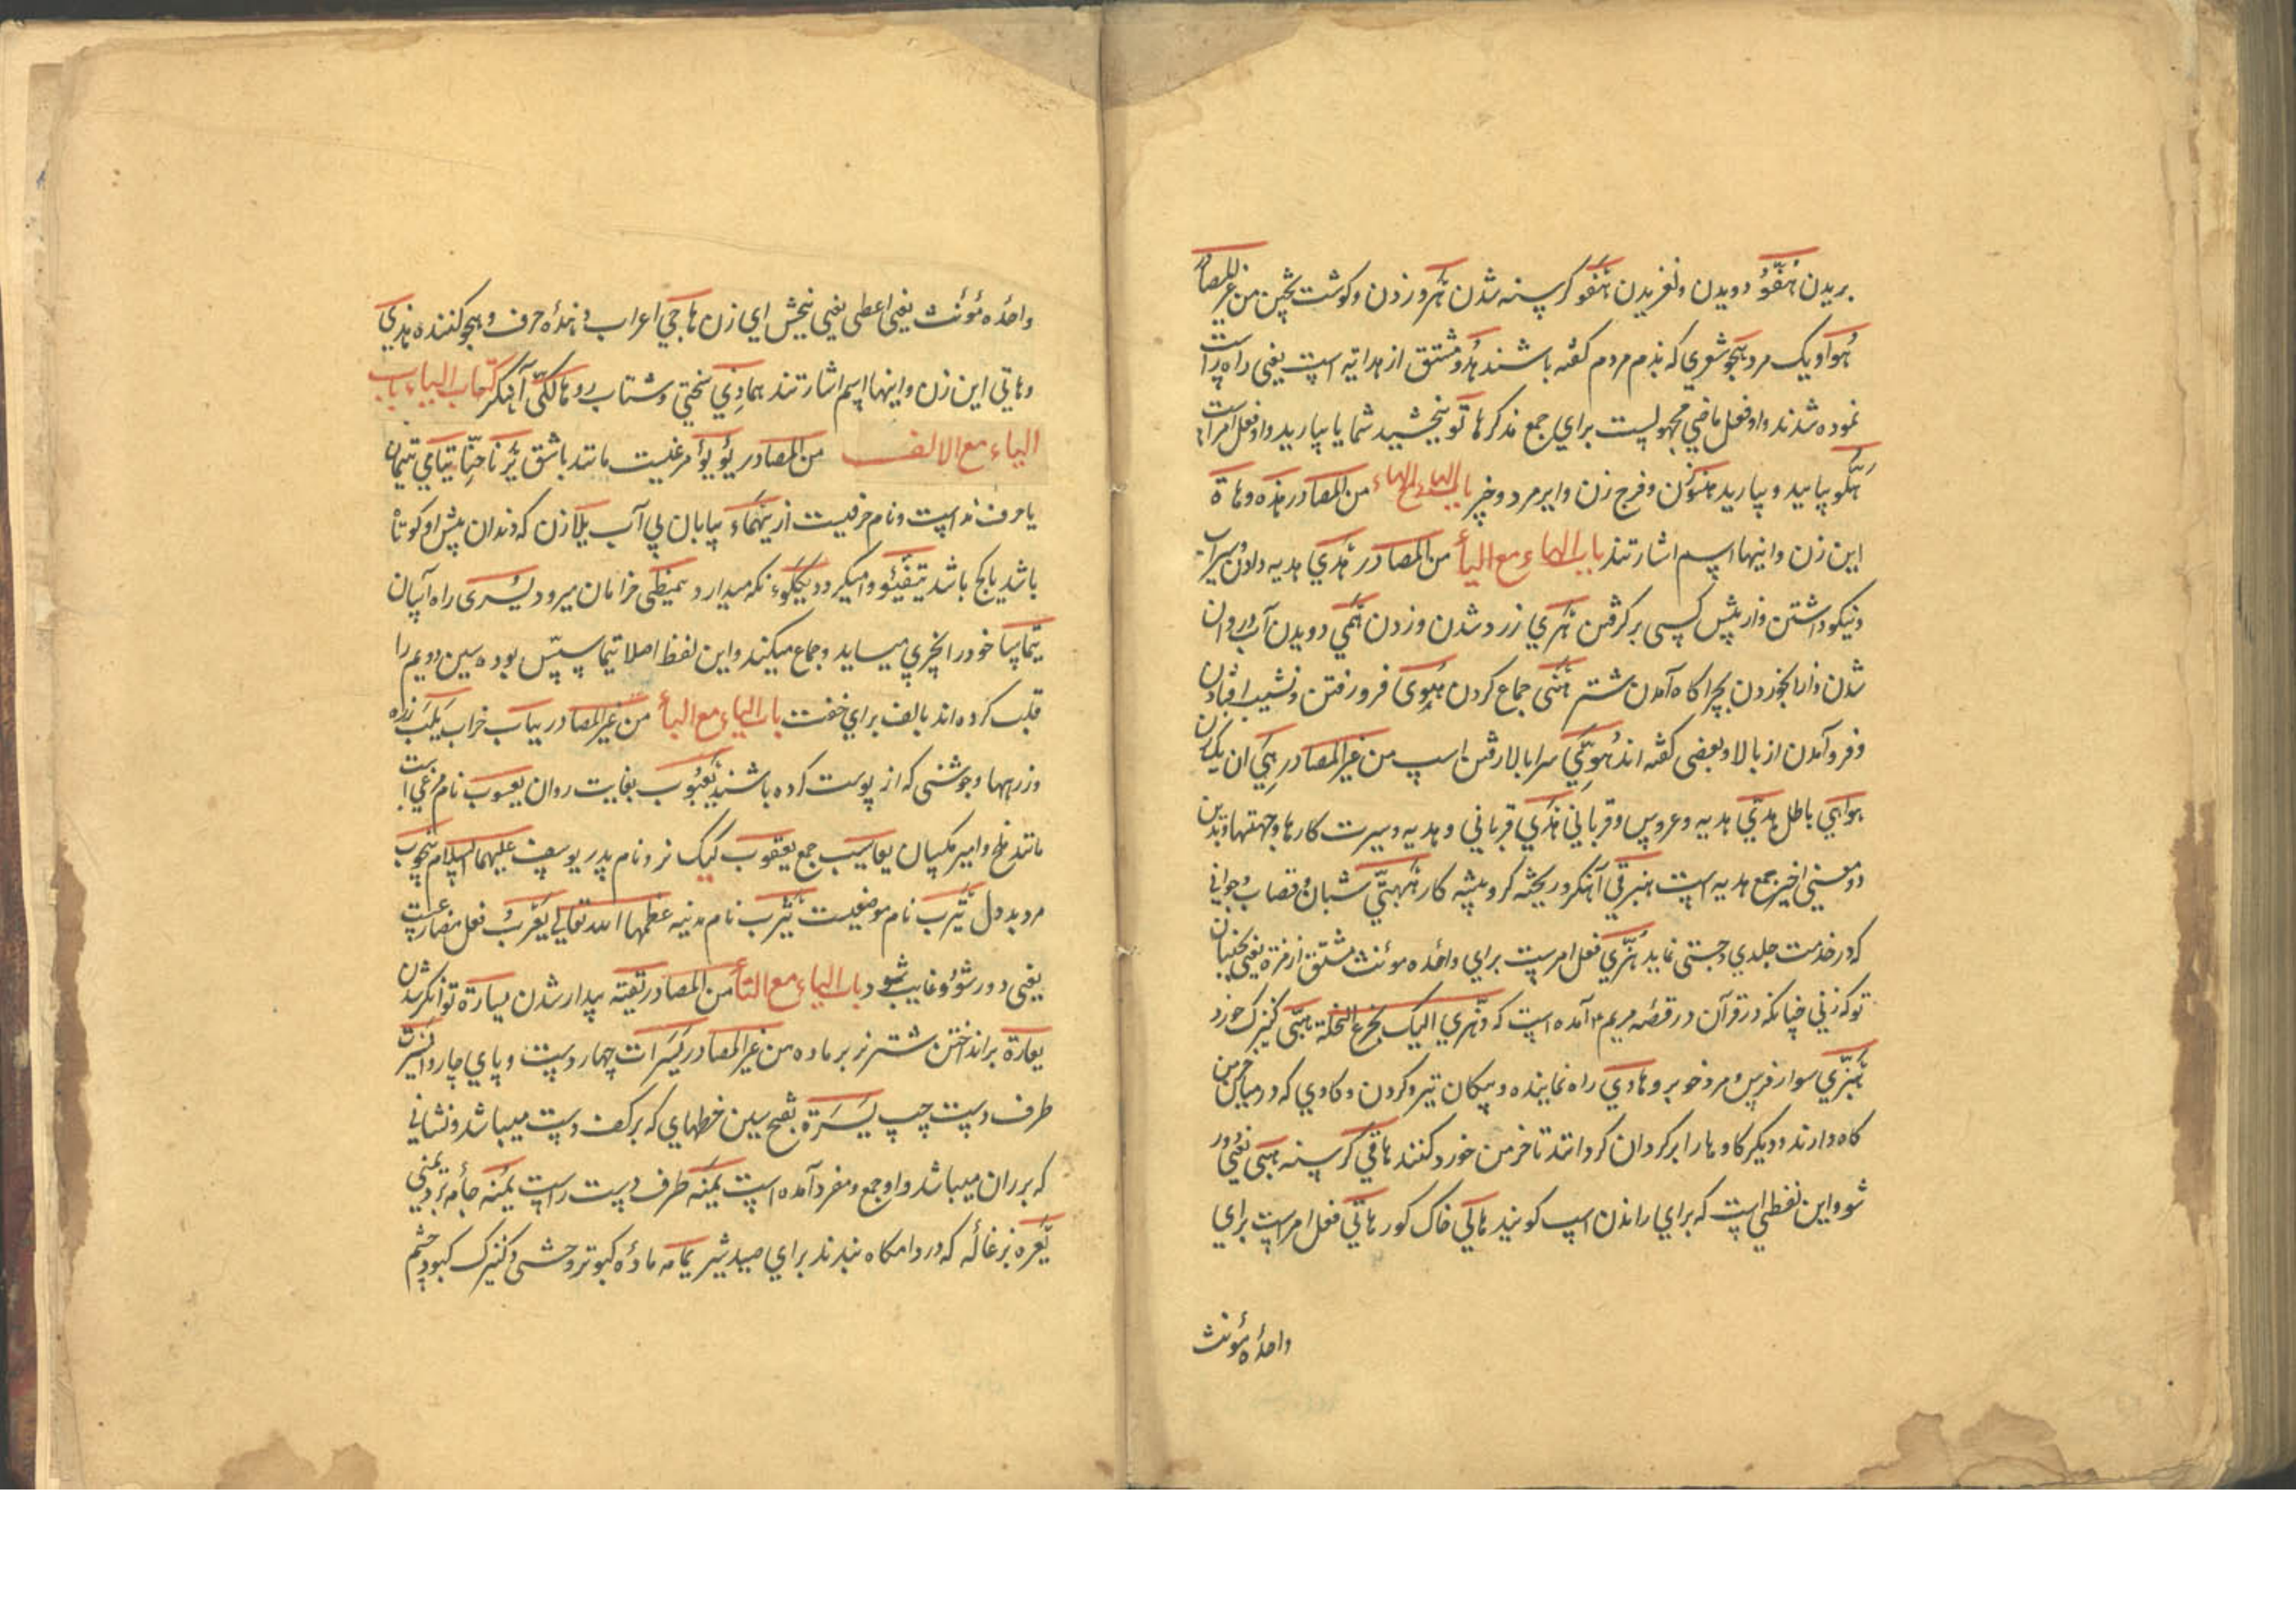 بریدن هَفْوُ دویدن ولغزیدن هَفْو کرسنه شدن هَرو زدن وکوشت پختن من غیر المصادر
هُوَ او یک مرد هَجْو شعری که بذم مردم کفته باشند هُدُو مشتق از هدایة است یعنی راه راست
نموده شدند واو فعل ماضی مجهولست برای جمع مذکر هاتوا بخشید شما یا بیارید واو فعل امر است
بیایید وبیارید هَنُو زن وفرج زن وایر مرد وچیز باب الهاء مع الهاء من المصادر هذه وهاة
این زن واینها اسم اشارتند باب الهاء مع الیأ من المصادر هَدْي هدیه دادن وسیراب
ونیکو داشتن واز پیش کسی بر کرفتن هَرْي زرد شدن وزدن هَمْي دویدن آب وروان
شدن وار بخوردن بچراکاه آمدن شتر هَنْی جماع کردن هُوِی فرو رفتن ونشیب افتادن
وفرو آمدن از بالا وبعضی کفته اند هُوِيّ سرابالا رفتن اسب من غیر المصادر هِيَ ان یک زن
هواهي باطل هَدِيّ هدیه وعروس وقربانی هَدْي قربانی وهدیه وسیرت کارها وجهتها وبدین
دو معنی اخیر جمع هدیه است هِبْرقي آهنکر وریخته کر وپیشه کار هَبْهَبيّ شبان وقصاب وجوانی
که در خدمت جلدي وچستی نماید هُزّي فعل امرست برای واحدۀ مؤنث مشتق از هزة یعنی بجنبان
تو که زنی چنانکه در قرآن در قصّه مریم ع آمده است که وهزي الیک بجذع النخلة هَبَیّ کنیزک خورد
هِبْرزي سوار فرس ومرد خوبرو وهادي راه نماینده وپیکان تیر وکردن وکاوي که در میان خرمن
کاه دارند ودیکر کاوها را بر کرد ان کردانند تا خرمن خورد کنند هاقي کرسنه هَبَی یعنی دور
شو واین لفظی است که برای راندن اسب کویند هالي خاک کور هاتي فعل امرست برای
واحدۀ مؤنث
واحدۀ مؤنث یعنی اعطی یعنی ببخش ای زن هاجي اعراب دهندۀ حرف وهجو کننده هذي
وهاتي این زن واینها اسم اشارتند هماذي سختي وشتاب رو هالکيّ آهنکر کتاب الیاء باب
الیاء مع الالف من المصادر یؤیؤ مرغیست مانند باشق یُرَنّا حنّا یتامي یتیمان
یا حرف نداست ونام حرفیست از یَهْمَاء بیابان بي آب یلّا زن که دندان پیش او کوتاه
باشد یا کج باشد یَتَفَیّئو وامیکردد یَکْلَوء نکه میدارد یمیطی خرامان میرود یُسْری راه آسان
یَتَماسّا خود را بچیزي میساید وجماع میکند واین لفظ اصلا یتماسس بوده سین دویم را
قلب کرده اند بالف برای خفت باب الیاء مع البأ من غیر المصادر یباب خراب یَلَب زره
وزرهها وجوشنی که از پوست کرده باشند یَعْبُوب بغایت روان یعسوب نام مرغي است
مانند ملخ وامیر مکسان یعاسیب جمع یعقوب کبک نر ونام پدر یوسف علیهما السلام یَنْخُوب
مرد بد دل یَتْرَب نام موضعیست یَثْرب نام مدینه عظمها الله تعالی یَعْزُبُ فعل مضارعست
یعنی دور شود وغایب شود باب الیاء مع التأ من المصادر یَقْظَة بیدار شدن یسارَة توانکر شدن
یعارة بر انداختن شتر نر بر ماده من غیر المصادر یَسَرات چهار دست وپاي چاروا یَسْرَة
طرف دست چپ یَسَرَة بفتح سین خطهاي که بر کف دست میباشد ونشانی
که بر ران میباشد واو جمع ومفرد آمده است یَمْنَه طرف دست راست یُمْنَه جامۀ برد یمنی
یَعْره بزغاله که در دامکاه ببندند برای صید شیر یمامه مادۀ کبوتر وحشی وکنیزک کبود چشم